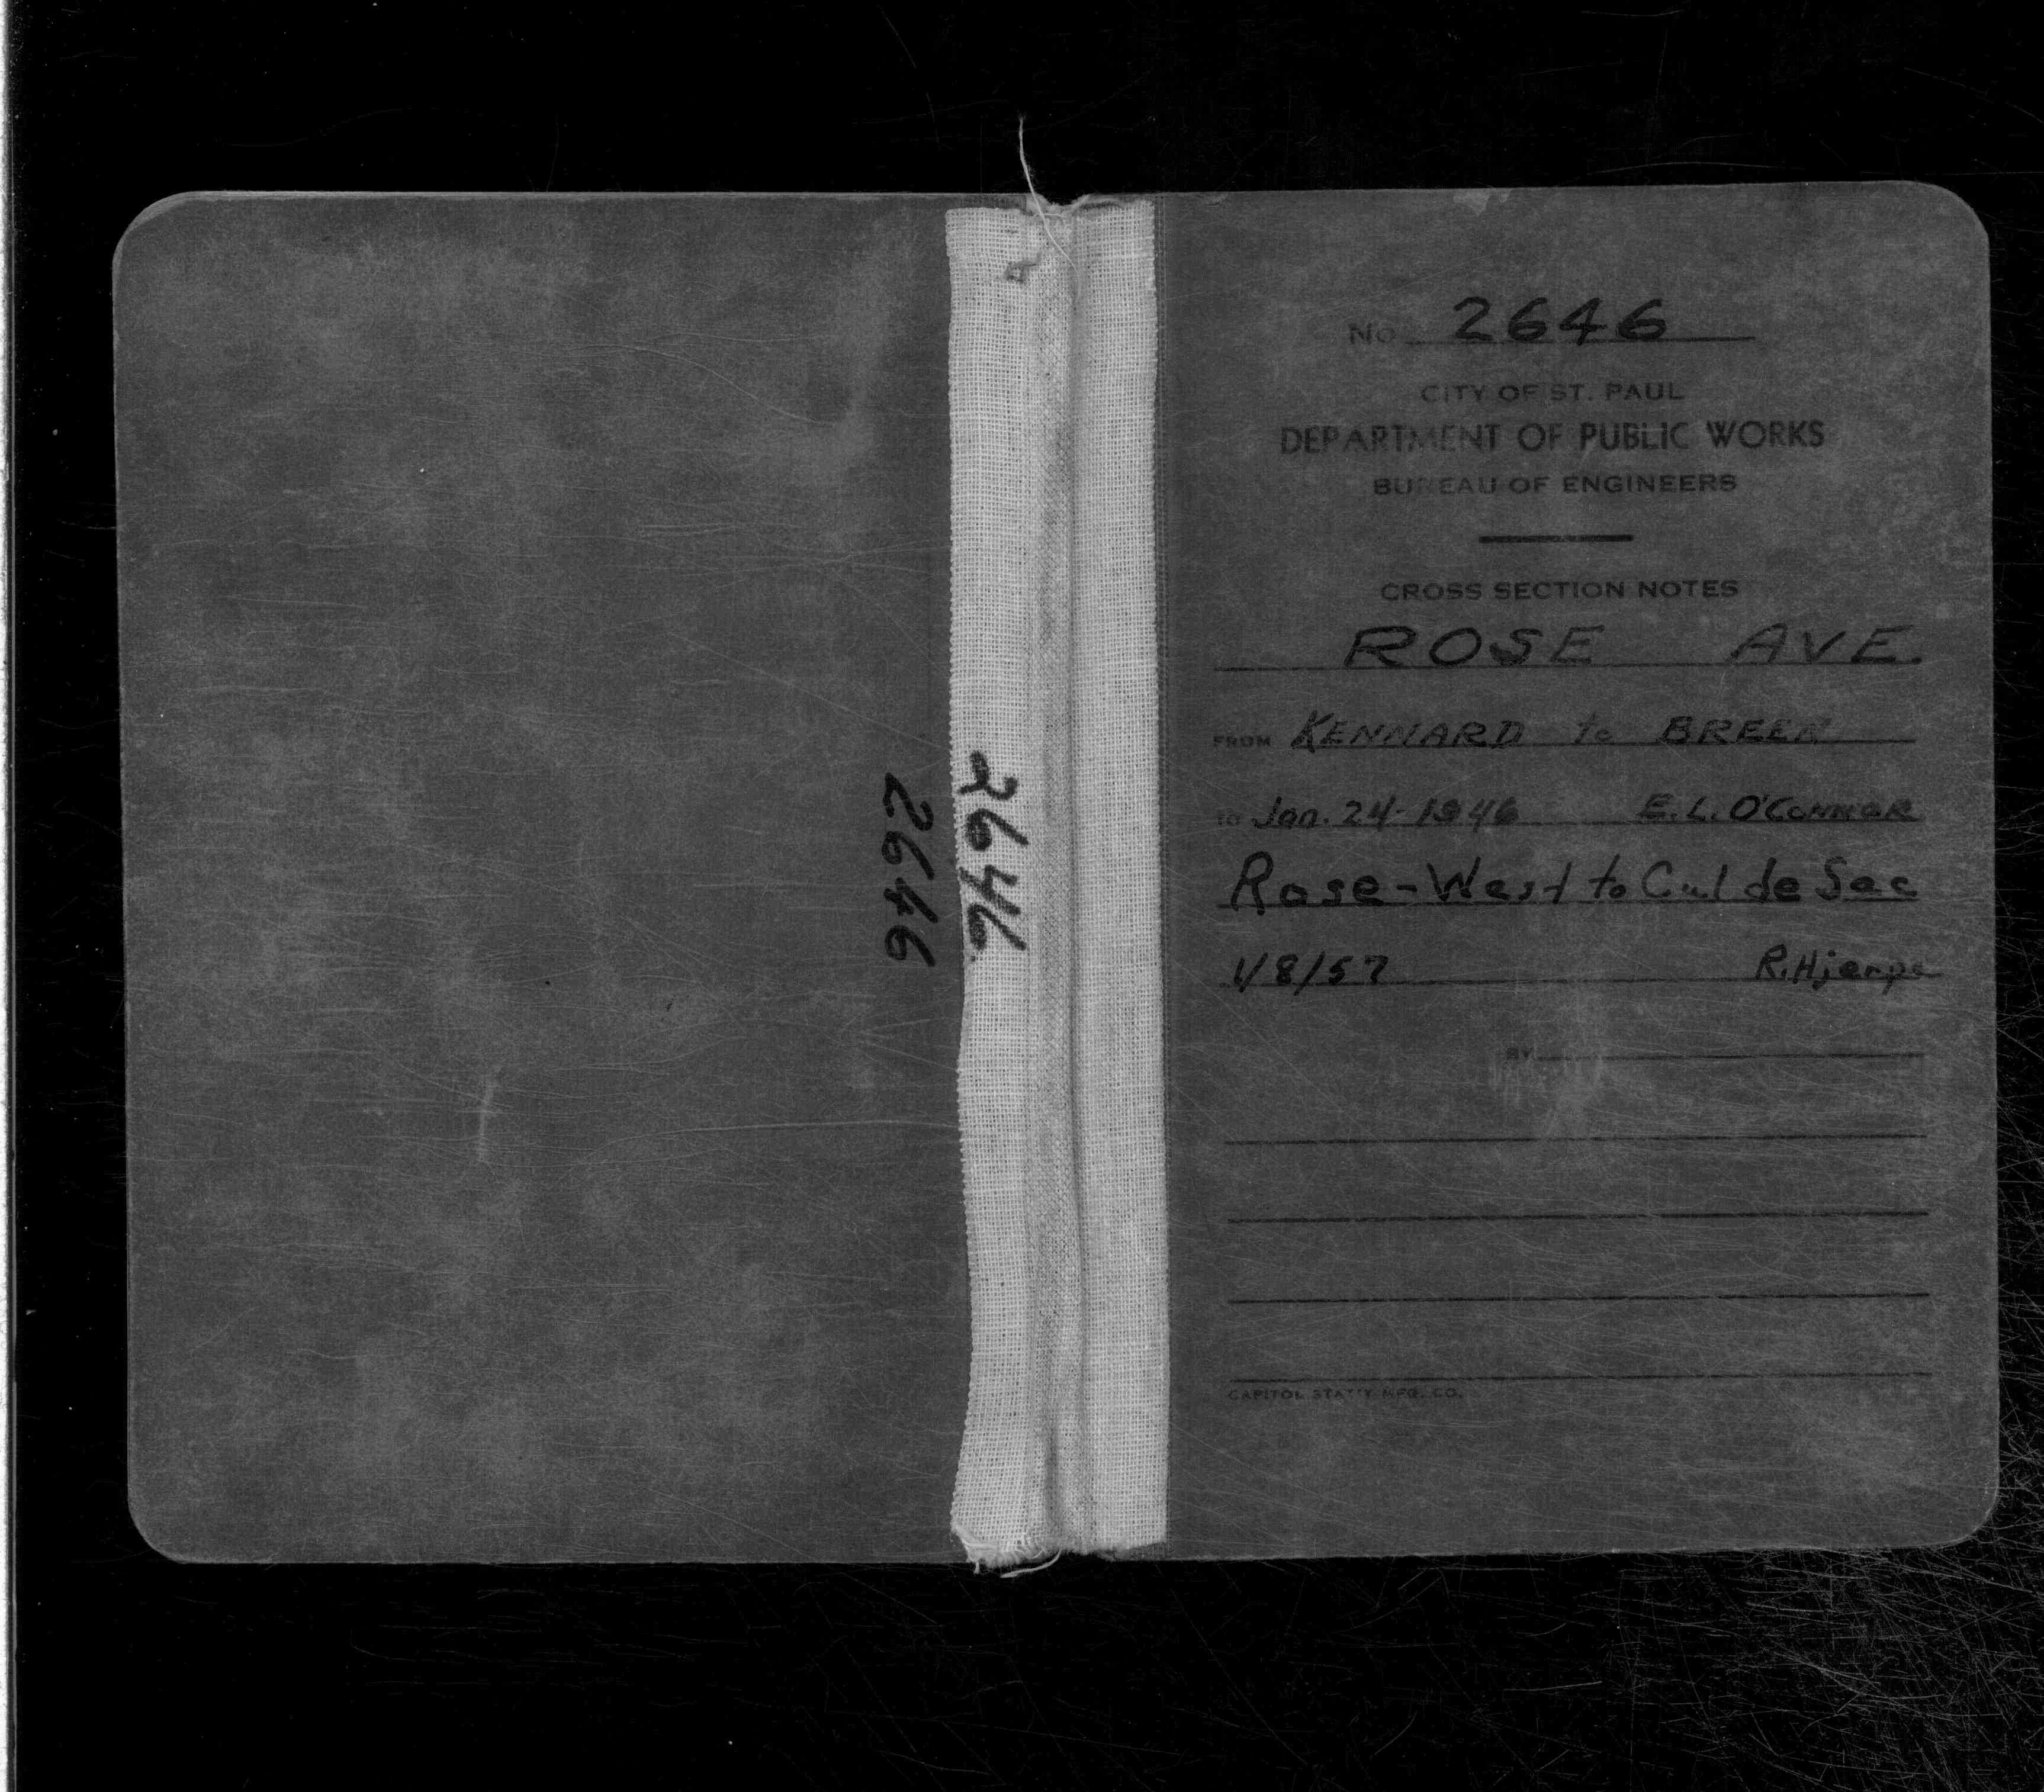 2646
2646
No 2646
CITY OF ST. PAUL
DEPARTMENT OF PUBLIC WORKS
BUREAU OF ENGINEERS
CROSS SECTION NOTES
ROSE AVE.
FROM KENNARD to BREEN
TO Jan. 24-1946 E. L. O'CONNOR
Rose-West to Cul de Sac
1/8/57 R. Hjerpe
BY
CAPITOL STAT'Y MFG. CO.